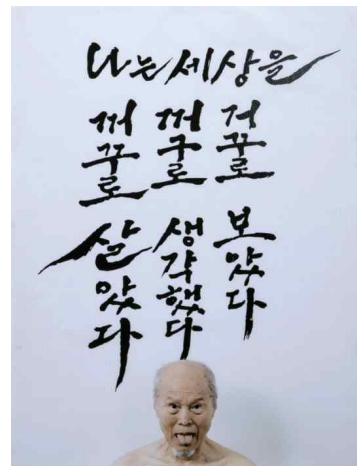 나는 세상을
거꾸로 보았다
꺼꾸로 생각했다
꺼꾸로 살았다